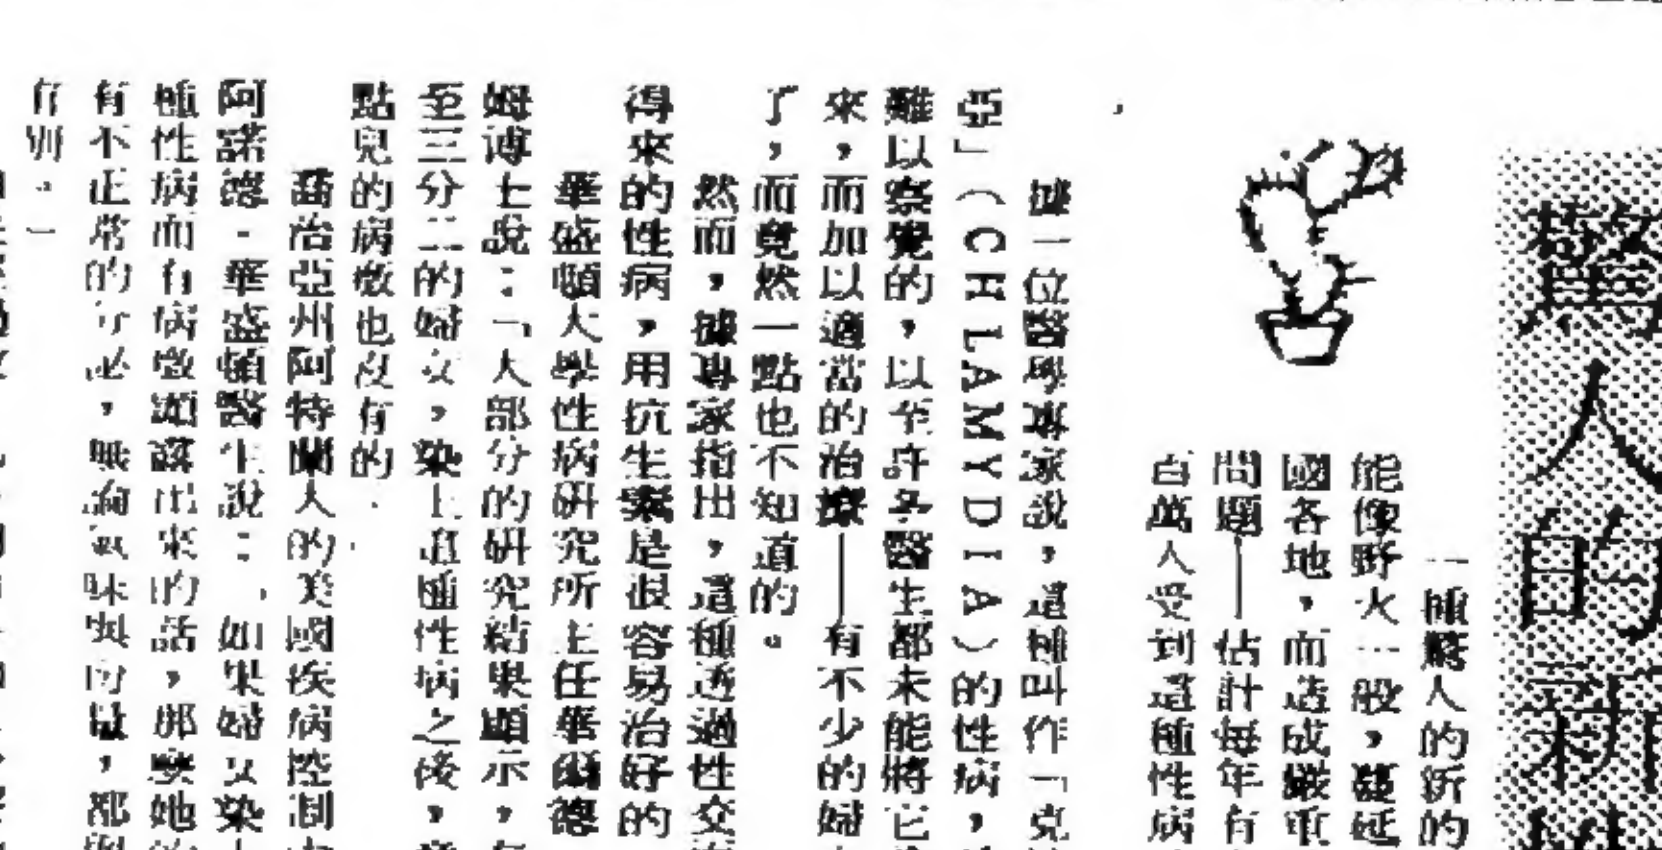 驚人的新
一種驚人的新的
能像野火一般，蔓延
國各地，而造成嚴重
問題——估計每年有
百萬人受到這種性病
據一位醫學專家說，這種叫作「克
亞」（CHLAMYDIA）的性病，
難以察覺的，以至許多醫生都未能將它
來，而加以適當的治療——有不少的婦
了，而竟然一點也不知道的。
然而，據專家指出，這種透過性交
得來的性病，用抗生素是很容易治好的
華盛頓大學性病研究所主任華爾德
姆博士說：「大部分的研究結果顯示，
至三分二的婦女，染上這種性病之後，
點兒的病徵也沒有的
喬治亞州阿特蘭大的美國疾病控制
阿諾德·華盛頓醫生說：「如果婦女染
種性病而有病徵顯露出來的話，那麼她
有不正常的分泌，無論氣味與份量，都
有別。」